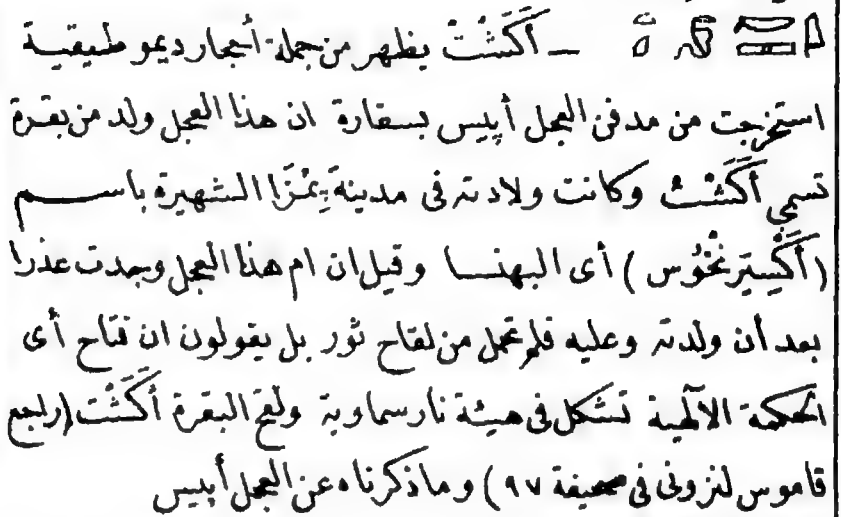 ــ أَكَشْتَ يظهر من جملة أحجار ديموطيقية
استخرجت من مدفن العجل أپيس بسقارة ان هذا العجل ولد من بقرة
تسمى أَكَشْتُ وكانت ولادته فى مدينة پِمْزَا الشهيرة باســـم
(أُكْسِيْرِنْخُوس) أى البهنســا وقيل ان ام هذا العجل وجدت عذرا
بعد أن ولدته وعليه فلم تحمل من لقاح ثور بل يقولون ان فتاح أى
الحكمة الآلهية تشكل فى هيئة نار سماوية ولقح البقرة أَكَشْت (راجع
قاموس لنزونى فى صحيفة ٩٧) وما ذكرناه عن العجل أپيس